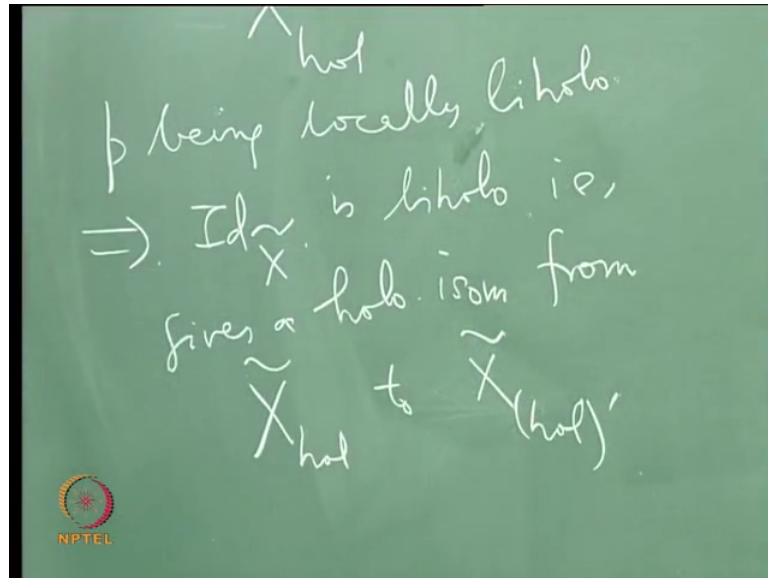 X_hol
p being locally biholo.
⇒. Id_X̃. is biholo i.e,
gives a holo. isom from
X̃_hol to X̃_(hol)'
NPTEL